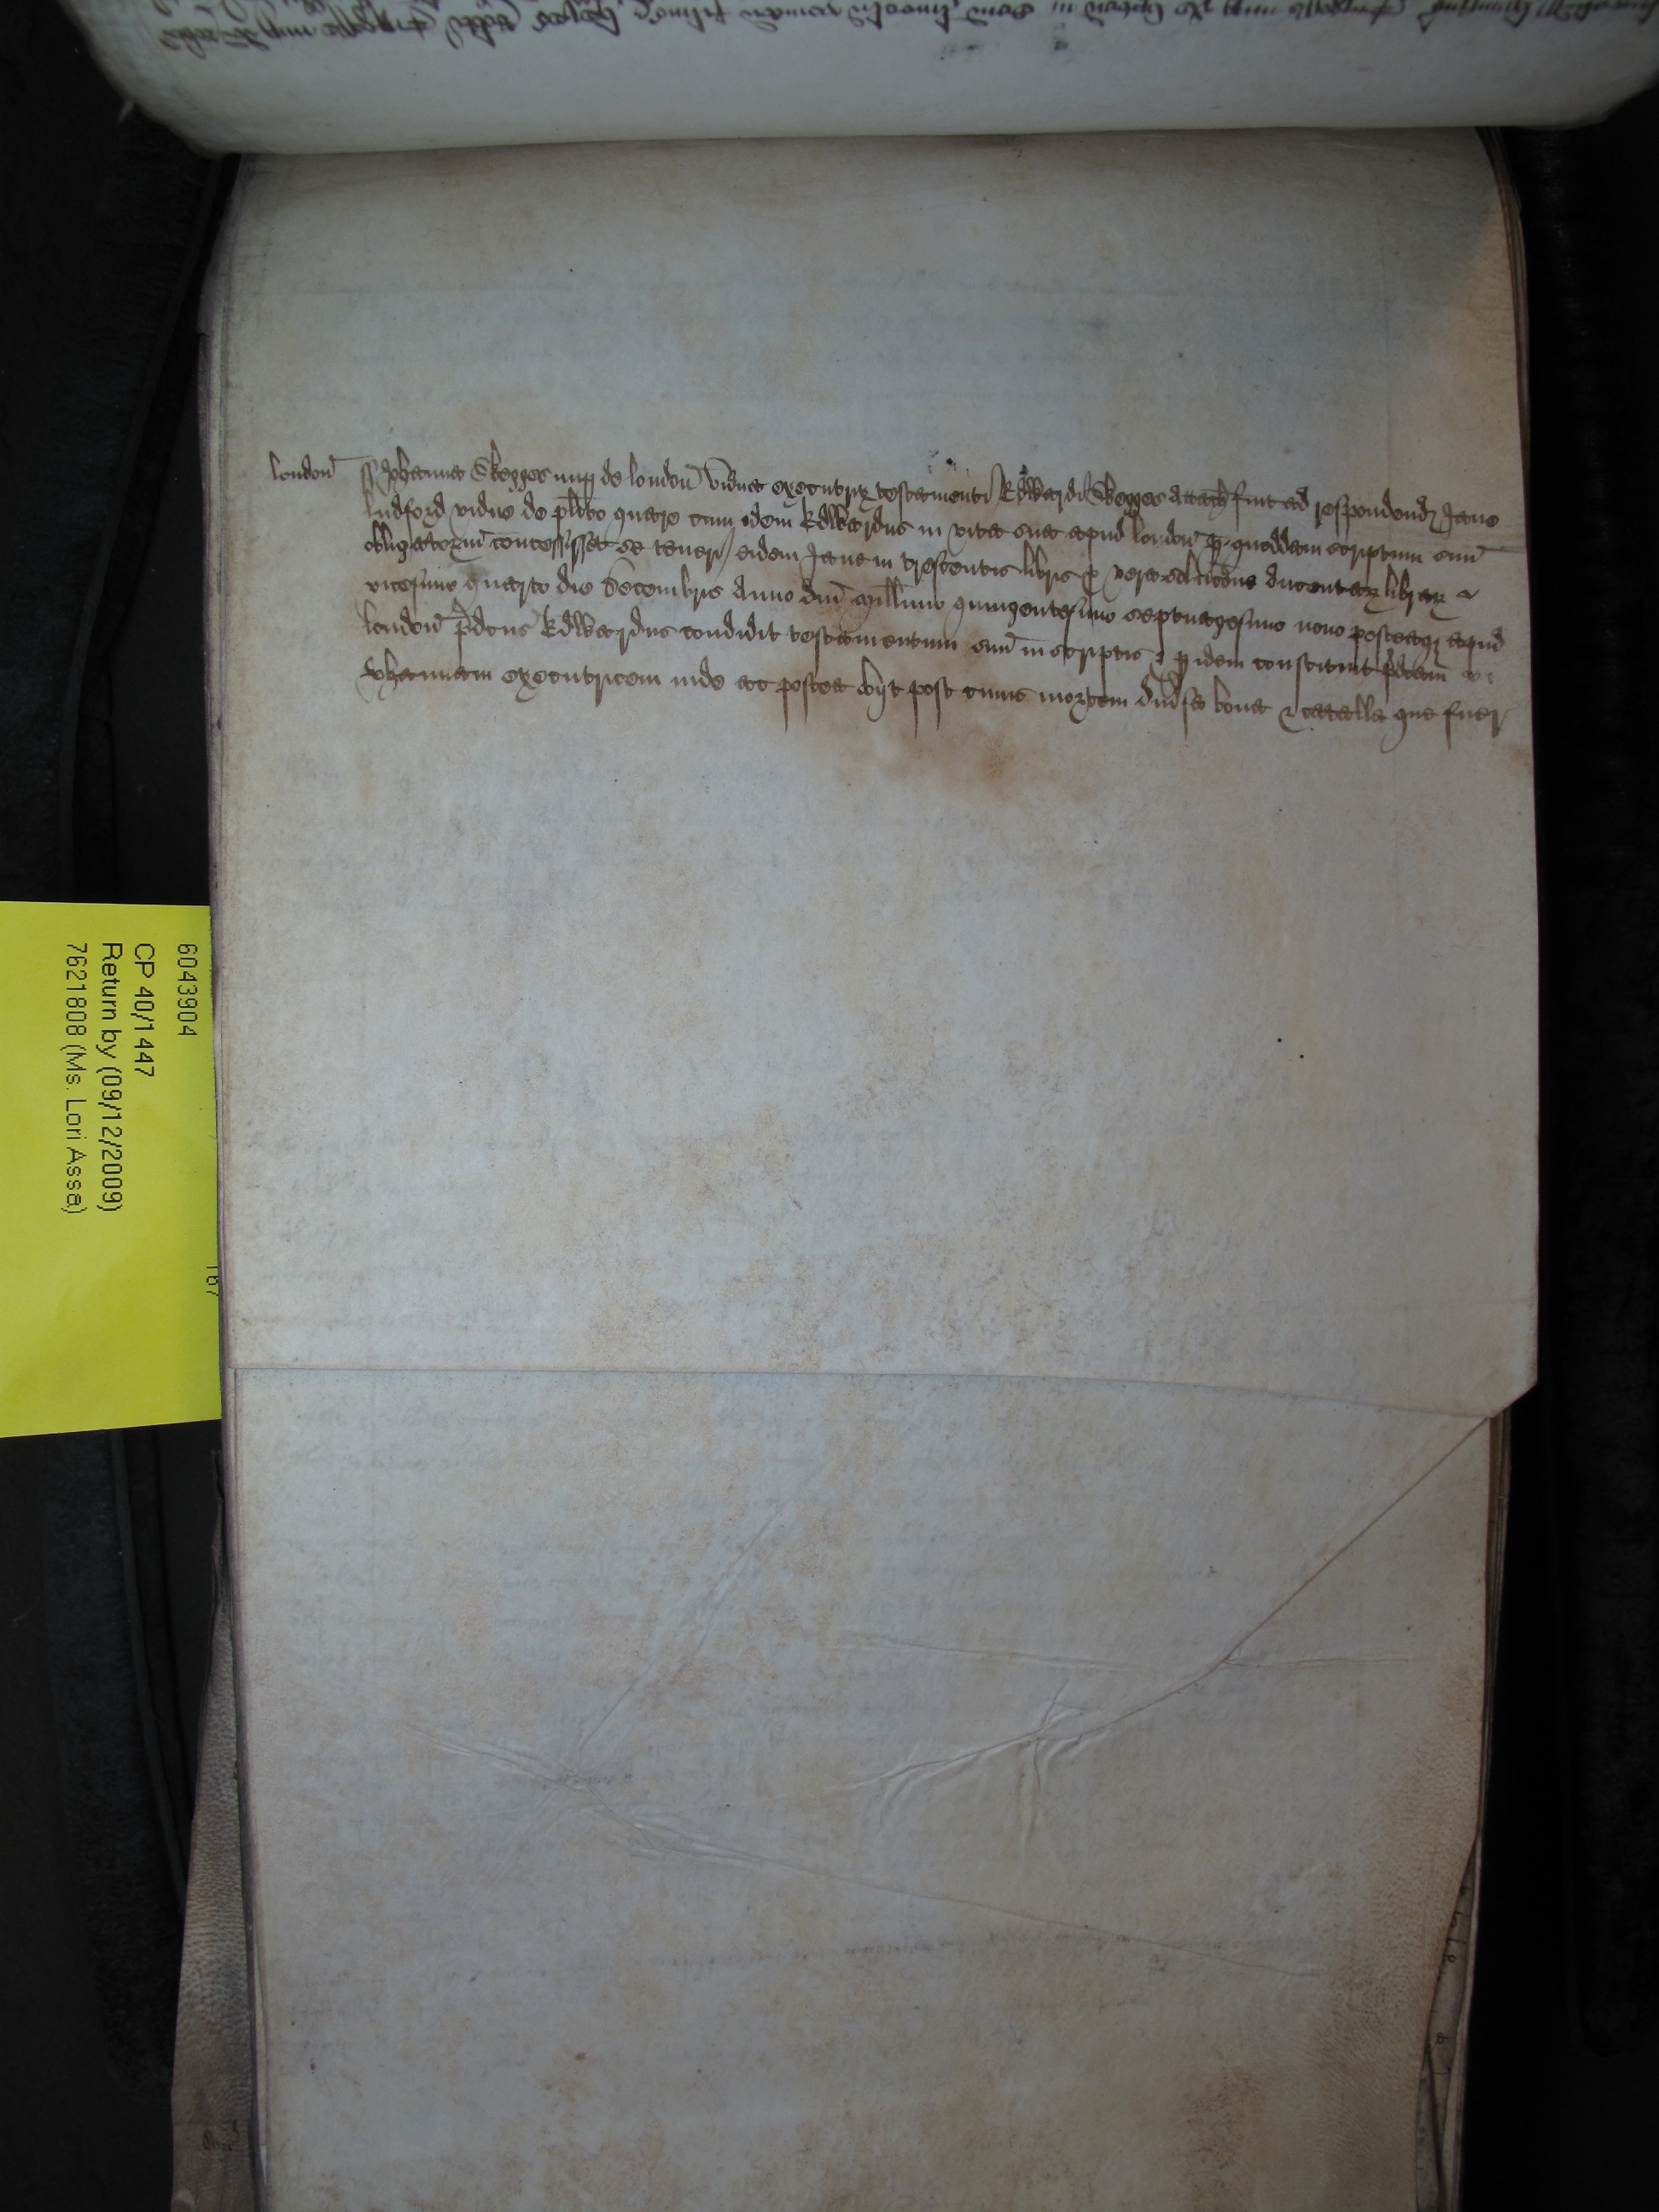 londoñ ss Johanna Skegges nup de londoñ vidua executrix testamenti Edwardi Skegges attach fuit ad respondend Jane
ludford vidue de plito quare cum idem Edwardus in vita sua apud londoñ p quoddam scriptum suũ
obligatoriũ concessisset se teneri eidem Jane in trescentis libris p vera solucione ducentar librar &
vicesimo quarto die Decembris Anno dñi millimo quingentesimo septuagesimo nono posteaq apud
londoñ pdcus Edwardus condidit testamentum suũ in scriptis & p idem constituit pdcam
Johannam executricem inde ac postea obijt post cuius mortem diusa bona & catalla que fuer
6043904
CP 40/1447
Return by (09/12/2009)
7621808 (Ms. Lori Assa)
167